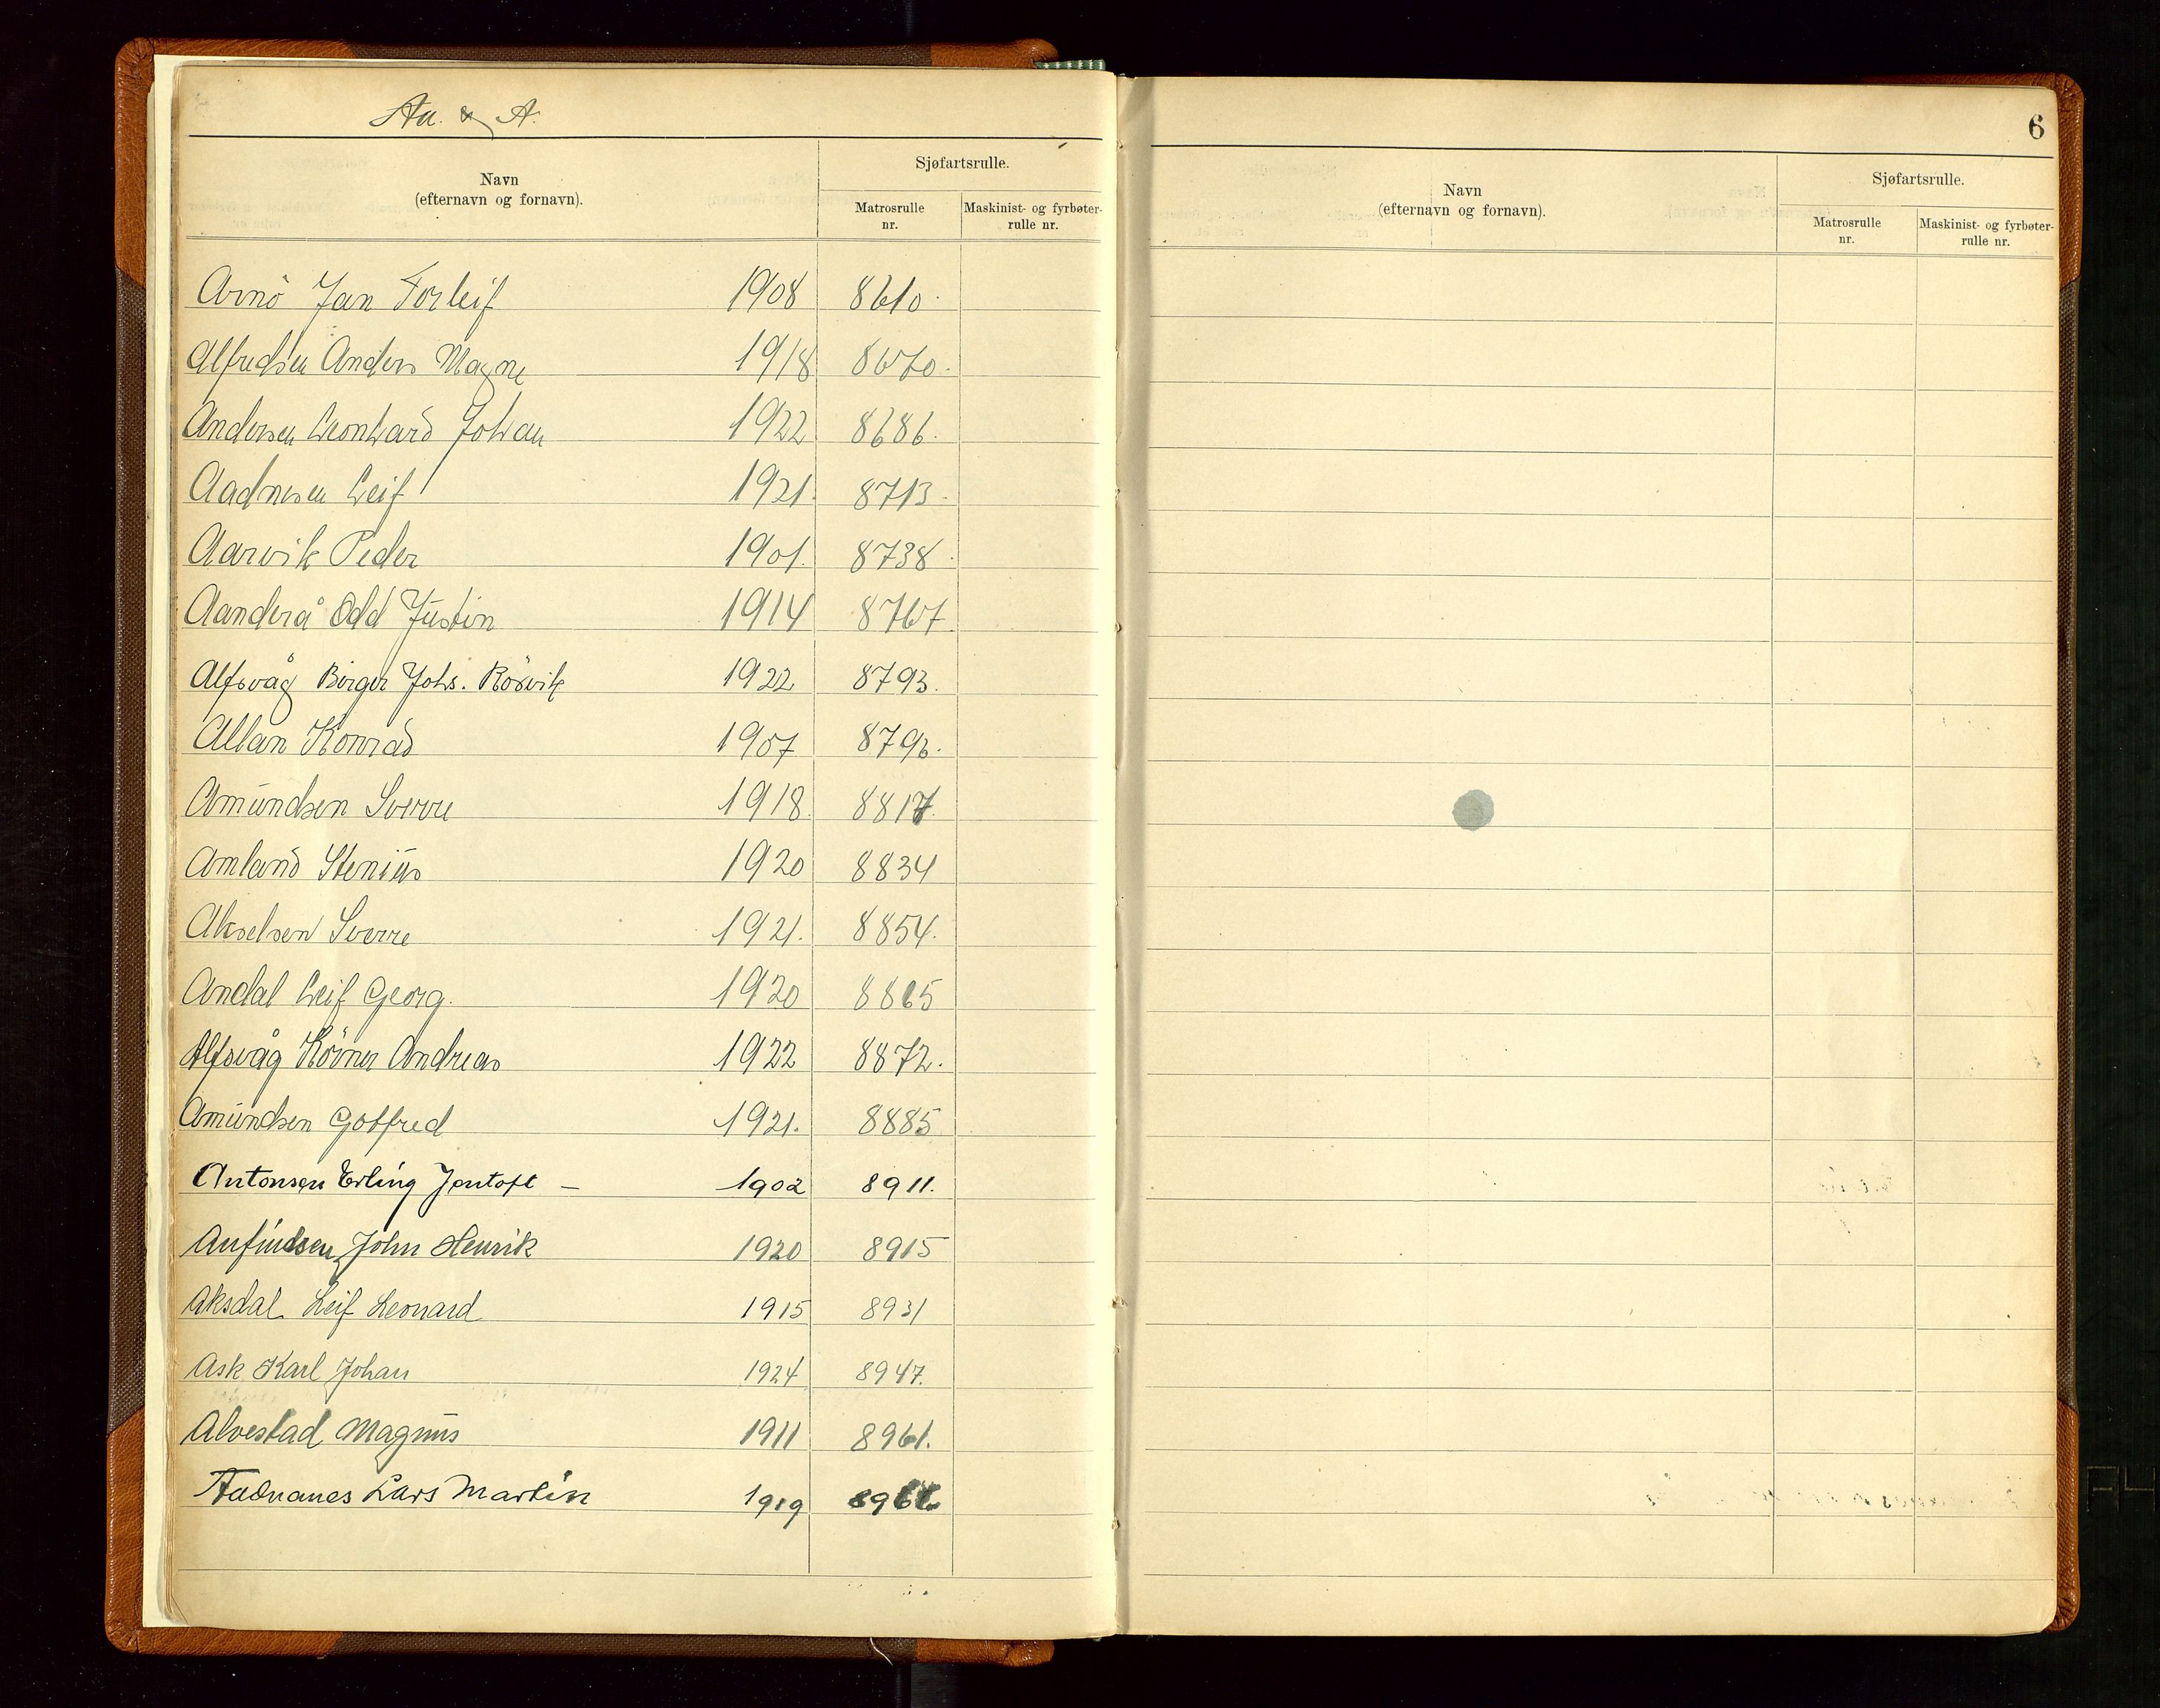 Aa. & A.
Navn
(efternavn og fornavn).
Sjøfartsrulle.
Matrosrulle
nr.
Maskinist- og fyrbøter-
rulle nr.
Arnö Jan Torleif 1908 8610.
Alfredsen Anders Magne 1918 8670.
Andersen Leonhard Johan 1922 8686.
Aadnesen Leif 1921. 8713.
Aarvik Peder 1901. 8738.
Aanderå Odd Justin 1914 8767.
Alfsvåg Birger Johs. Rösvik 1922 8793.
Allan Konrad 1907 8796.
Amundsen Sverre 1918. 8817.
Amland Stenius 1920 8834
Akselsen Sverre 1921. 8854.
Andal Leif Georg. 1920 8865
Alfsvåg Körner Andreas 1922 8872.
Amundsen Gotfred 1921. 8885
Antonsen Erling Jentoft — 1902 8911.
Anfindsen, John Henrik 1920 8915
Aksdal Leif Leonard 1915 8931
Ask Karl Johan 1924 8947.
Alvestad Magnus 1911 8961.
Aadnanes Lars Martin 1919
6
Navn
(efternavn og fornavn).
Sjøfartsrulle.
Matrosrulle
nr.
Maskinist- og fyrbøter-
rulle nr.